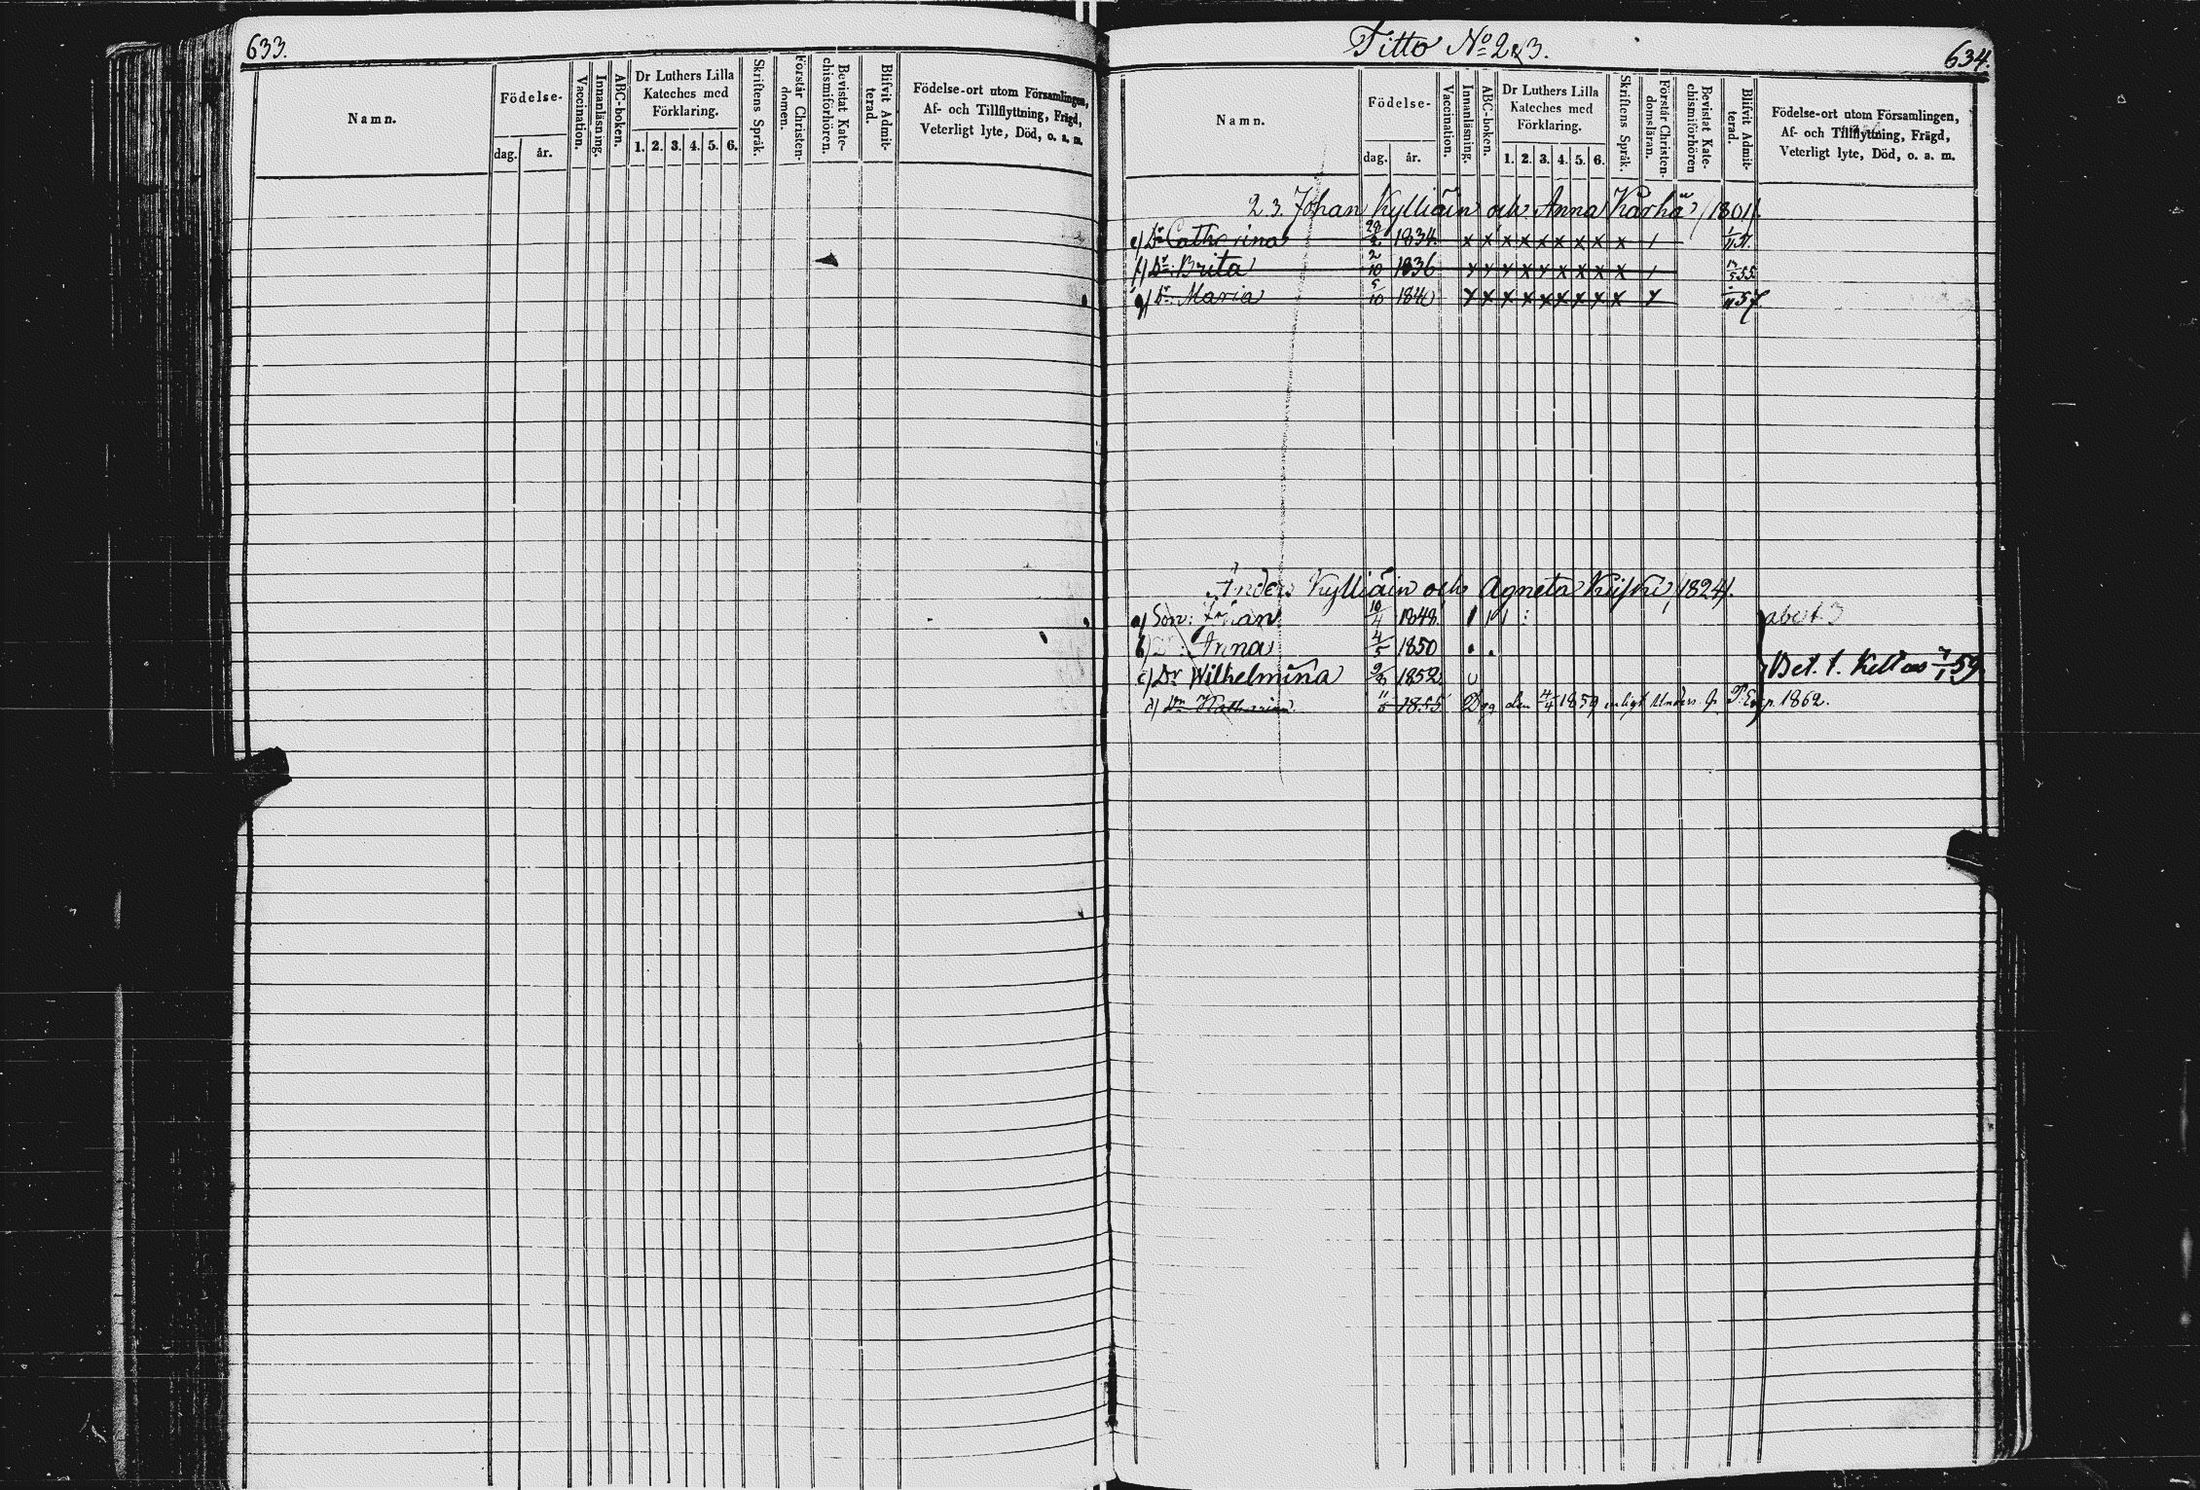 633.
Namn.
Födelse-
dag. år.
Vaccination.
Innanläsning.
ABC-boken.
Dr Luthers Lilla
Kateches med
Förklaring.
1. 2. 3. 4. 5. 6.
Skriftens Språk.
Förstår Christen-
domen.
Bevistat Kate-
chismiförhören.
Blifvit Admit-
terad.
Födelse-ort utom Församlingen,
Af- och Tillflyttning, Frägd,
Veterligt lyte, Död, o. a. m.
Titto No 2 & 3.
634.
Namn.
Födelse-
dag. år.
Vaccination.
Innanläsning.
ABC-boken.
Dr Luthers Lilla
Kateches med
Förklaring.
1. 2. 3. 4. 5. 6.
Skriftens Språk.
Förstår Christen-
domsläran.
Bevistat Kate-
chismiförhören
Blifvit Admit-
terad.
Födelse-ort utom Församlingen,
Af- och Tillflyttning, Frägd,
Veterligt lyte, Död, o. a. m.
2 3. Johan Kylliäin och Anna Kärhä /1801/.
e) Dr Catharina 1834 x x x x x x x x x /
f) Dr Brita 2/10 1836 x x x x x x x x x / 55
g) Dr Maria 5/10 1840 x x x x x x x x x x 57
Anders Kylliäin och Agneta /1824/.
a) Son: Johan 10/4 1848
b) Anna 4/5 1850
c) Dr Wilhelmina 1852
Bet. t. 59
d) Dr 1855 den 4/4 1859 enligt 1862.